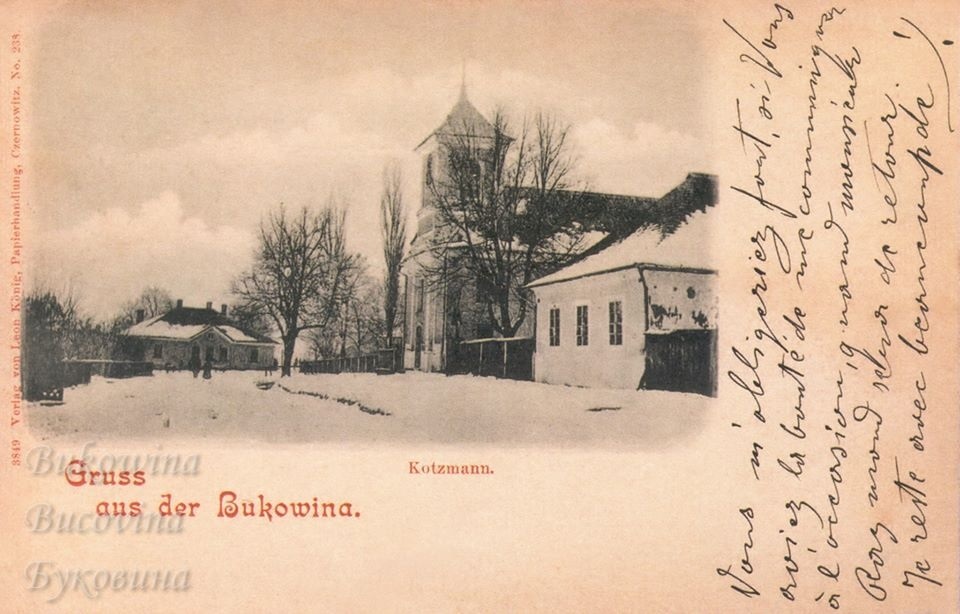 3849 Verlag von Leon König, Papierhandlung, Czernowitz. No. 238.
Kotzmann.
Gruss
aus der Bukowina.
Bukowina
Bucovina
Буковина
Vous m'obligeriez fort, si Vous
aviez la bonté de me communiquer
à l'occasion, quand monsieur
Raymond sera de retour.
Je reste avec